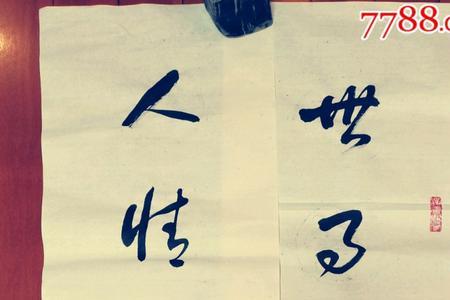 7788.c
世事
人情